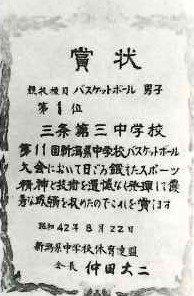 賞状
競技種目 バスケットボール 男子
第1位
三条第三中学校
第11回新潟県中学校バスケットボール
大会において日ごろ鍛えたスポーツ
精神と技術を遺憾なく発揮し優
秀な成績を収めたのでこれを賞します
昭和42年8月22日
新潟県中学校体育連盟
会長 仲田大二